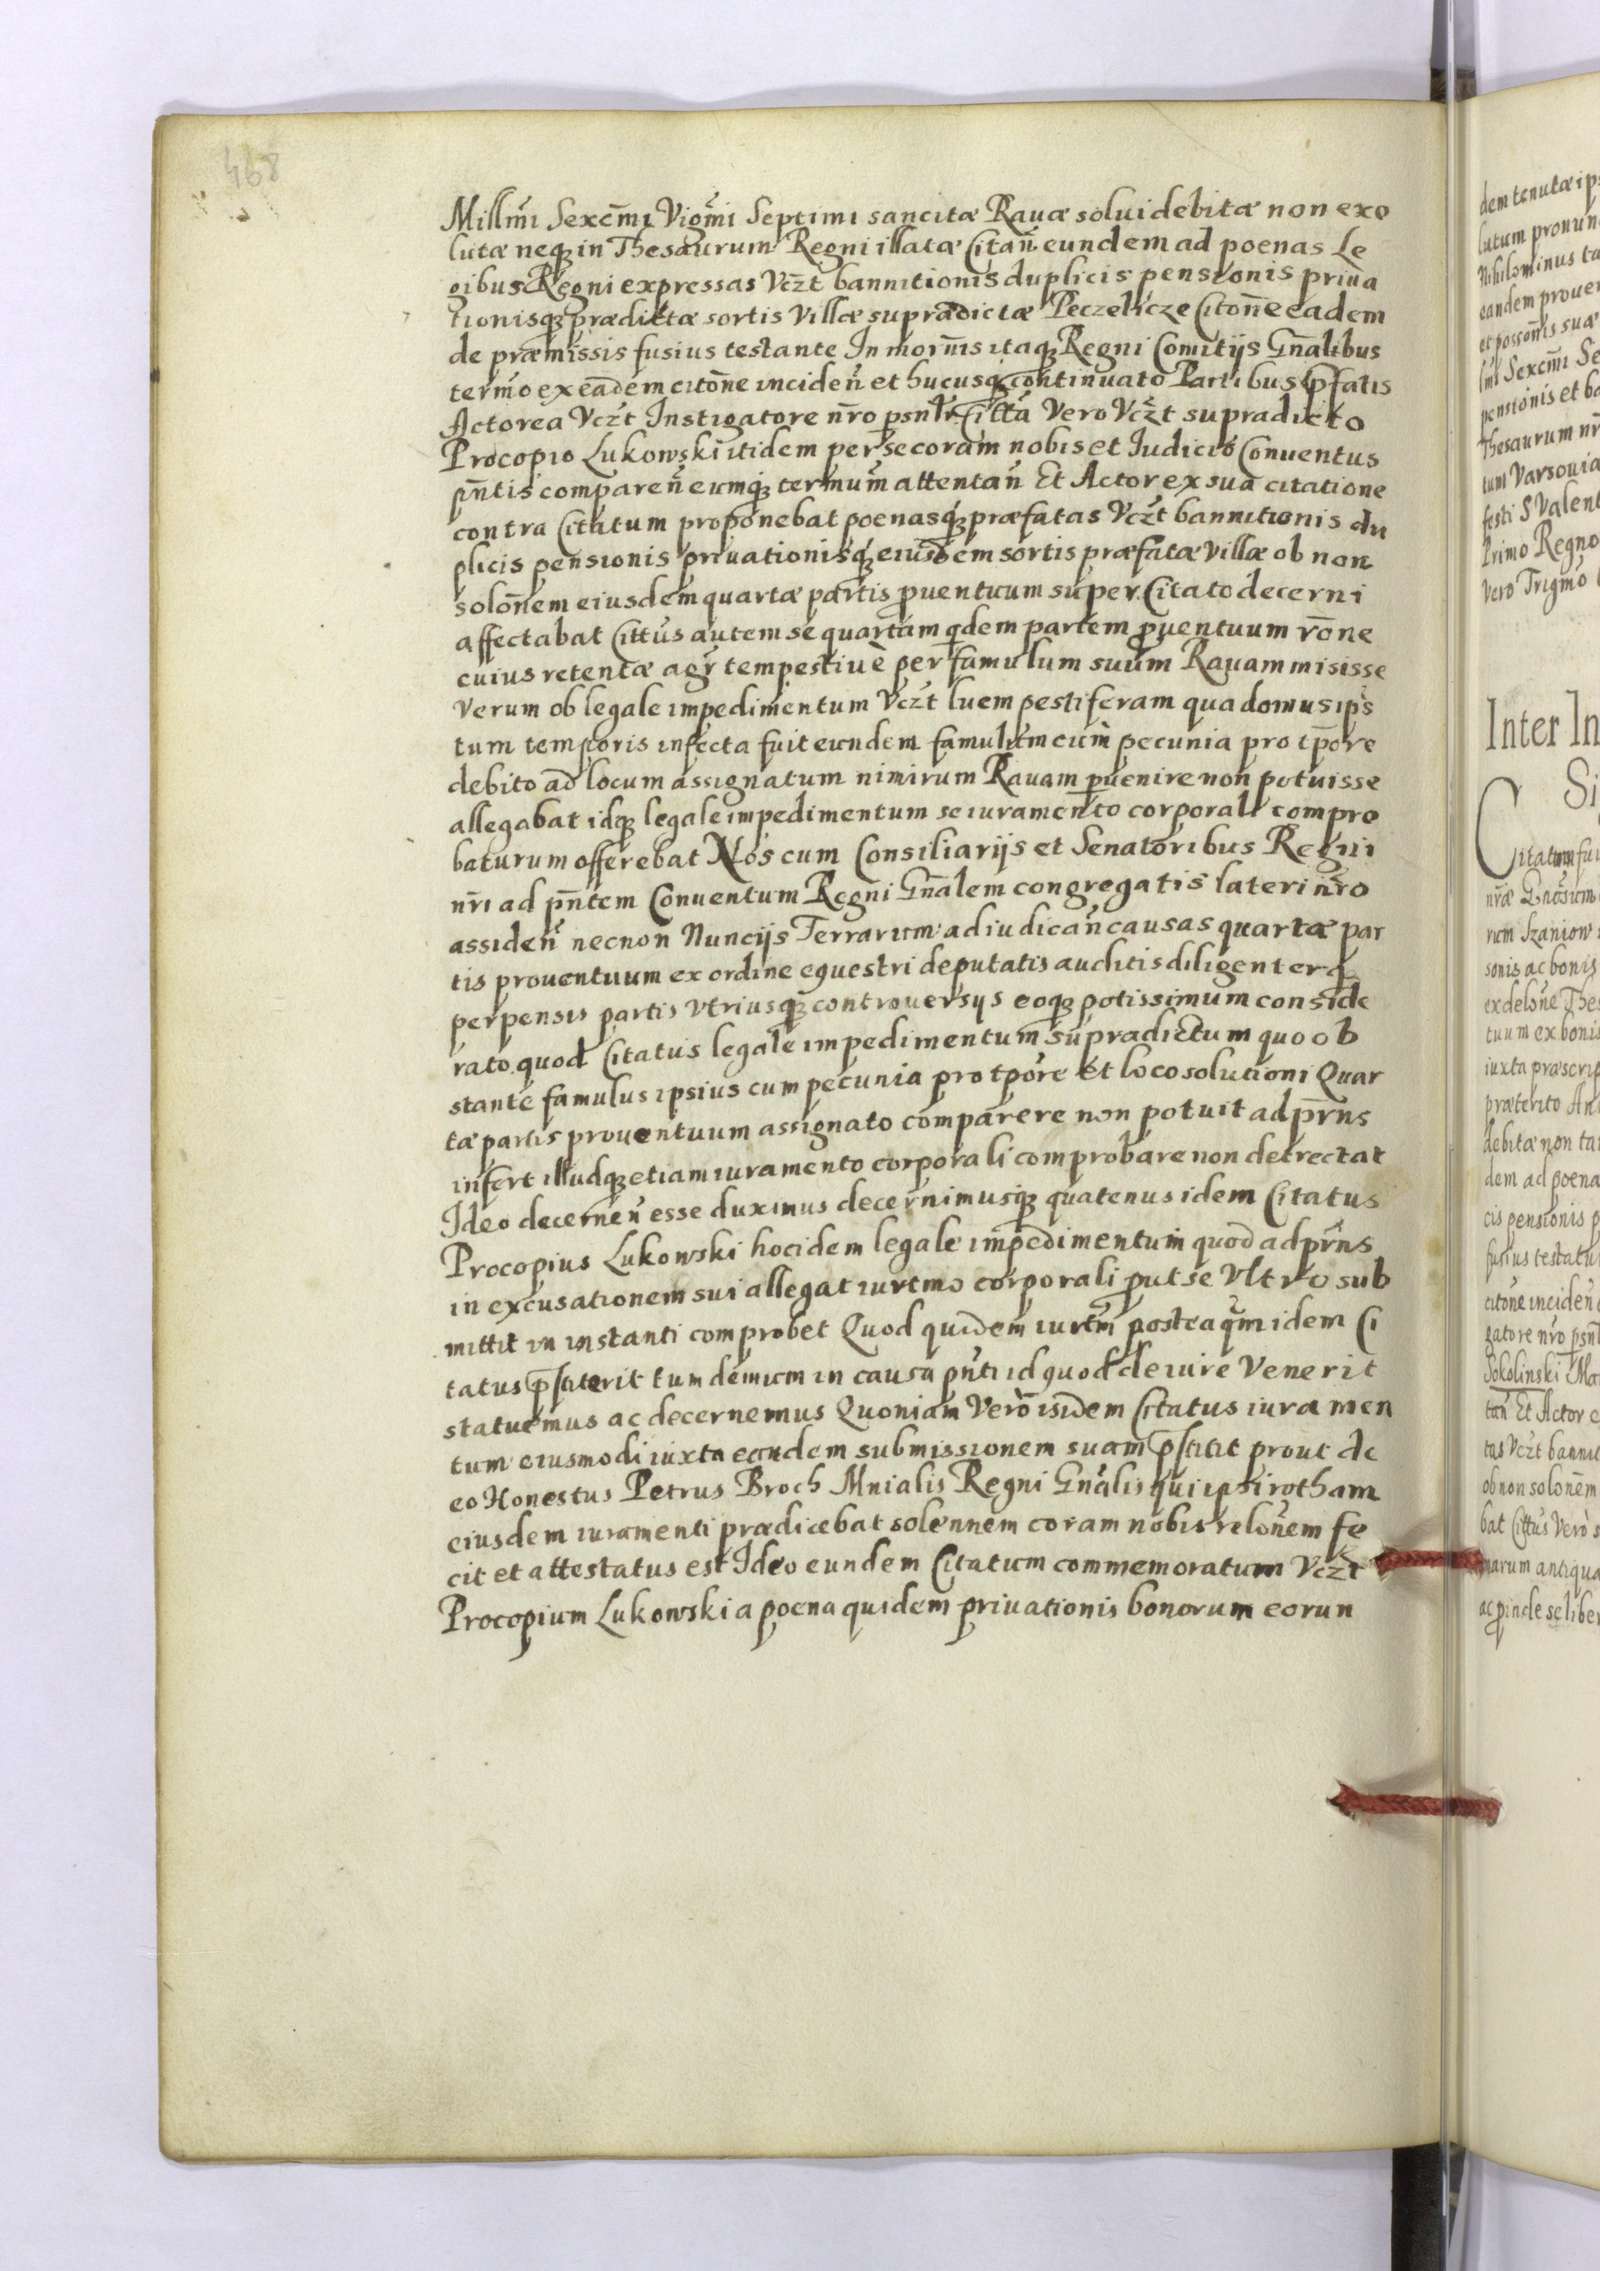 468
Millm̃i Sexcm̃i Vigm̃i Septimi sancitæ Ravæ solvi debitæ non exo
lutæ neq₃ in Thesaurum Regni illatæ Citañ eundem ad poenas Le
gibus Regni expressas Vcz̃t bannitionis duplicis pensionis priva
tionisq₃ prædictæ sortis Villæ supradictæ Peczelicze Citoñe eadem
de præmissis fusius testante In morñis itaq₃ Regni Comitijs Gñalibus
termõ ex eadem citoñe inciden̄ et hucusq₃ continuato Partibus p̃fatis
Actorea Vcz̃t Instigatore nr̃o psnl̃r Citt̃a Vero Vcz̃t supradicto
Procopio Lukowski itidem per se coram nobis et Iudicio Conventus
pñtis compareñ eumq₃ termum̃ attentañ Et Actor ex sua citatione
contra Citatum proponebat poenasq₃ præfatas Vcz̃t bannitionis du
plicis pensionis privationisq₃ eiusdem sortis præfatæ Villæ ob non
soloñem eiusdem quartæ partis p̱ventuum super Citato decerni
affectabat Citt̃us autem se quartam qdem partem p̱ventuum roñe
cuius retentæ agr̃ tempestivè per famulum suum Ravam misisse
Verum ob legale impedimentum Vcz̃t luem pestiferam qua domus ips̃
tum temporis infecta fuit eundem famulum cum pecunia pro tp̃ore
debito ad locum assignatum nimirum Ravam p̱venire non potuisse
allegabat idq₃ legale impedimentum se iuramento corporali compro
baturum offerebat Nos cum Consiliarijs et Senatoribus Regni
nr̃i ad pñtem Conventum Regni Gñalem congregatis lateri nr̃o
assideñ necnon Nuncijs Terrarum ad iudicañ causas quartæ par
tis proventuum ex ordine equestri deputatis auditis diligenterq₃
perpensis partis Vtriusq₃ controversijs eoq₃ potissimum conside
rato quod Citatus legale impedimentum supradictum quo ob
stante famulus ipsius cum pecunia pro tp̃ore et loco solutioni Quar
tæ partis proventuum assignato comparere non potuit ad pr̃ns
infert illudq₃ etiam iuramento corporali comprobare non detrectat
Ideo decerneñ esse duximus decernimusq₃ quatenus idem Citatus
Procopius Lukowski hoc idem legale impedimentum quod ad pr̃ns
in excusationem sui allegat iurtmo corporali p̱ut se Vltro sub
mittit in instanti comprobet Quod quidem iurtm̃ posteaqm̃ idem Ci
tatus p̃stiterit tum demum in causa pñti id quod de iure Venerit
statuemus ac decernemus Quoniam Vero isdem Citatus iuramen
tum eiusmodi iuxta eandem submissionem suam p̃stitit prout de
eo Honestus Petrus Broch Mnialis Regni Gñalis qui ipsi rotham
eiusdem iuramenti prædicebat solennem coram nobis reloñem fe
cit et attestatus est Ideo eundem Citatum commemoratum Vcz̃t
Procopium Lukowski a poena quidem privationis bonorum eorun
dem tenutæ ips
lutum pronun
Nihilominus ta
eandem prover
et possoñis suæ
lmi Sexcm̃i Se
pensionis et ba
Thesaurum nr
tum Varsovia
festi S Valent
Primo Regno
vero Trigmo
Inter In
Si
Citatum fui
nræ Gnõsum
rum Szaniow
sonis ac bonis
ex deloñe Thes
tuum ex bonis
iuxta præscrip
præterito An
debitæ non tan
dem ad poena
cis pensionis p
fusius testatu
citoñe incideñ
gatore nr̃o psnl
Sokolinski Ma
tañ Et Actor e
tas Vcz̃t banni
ob non soloñem
bat Citt̃us Vero s
narum antiqua
ac p̱inde se liber